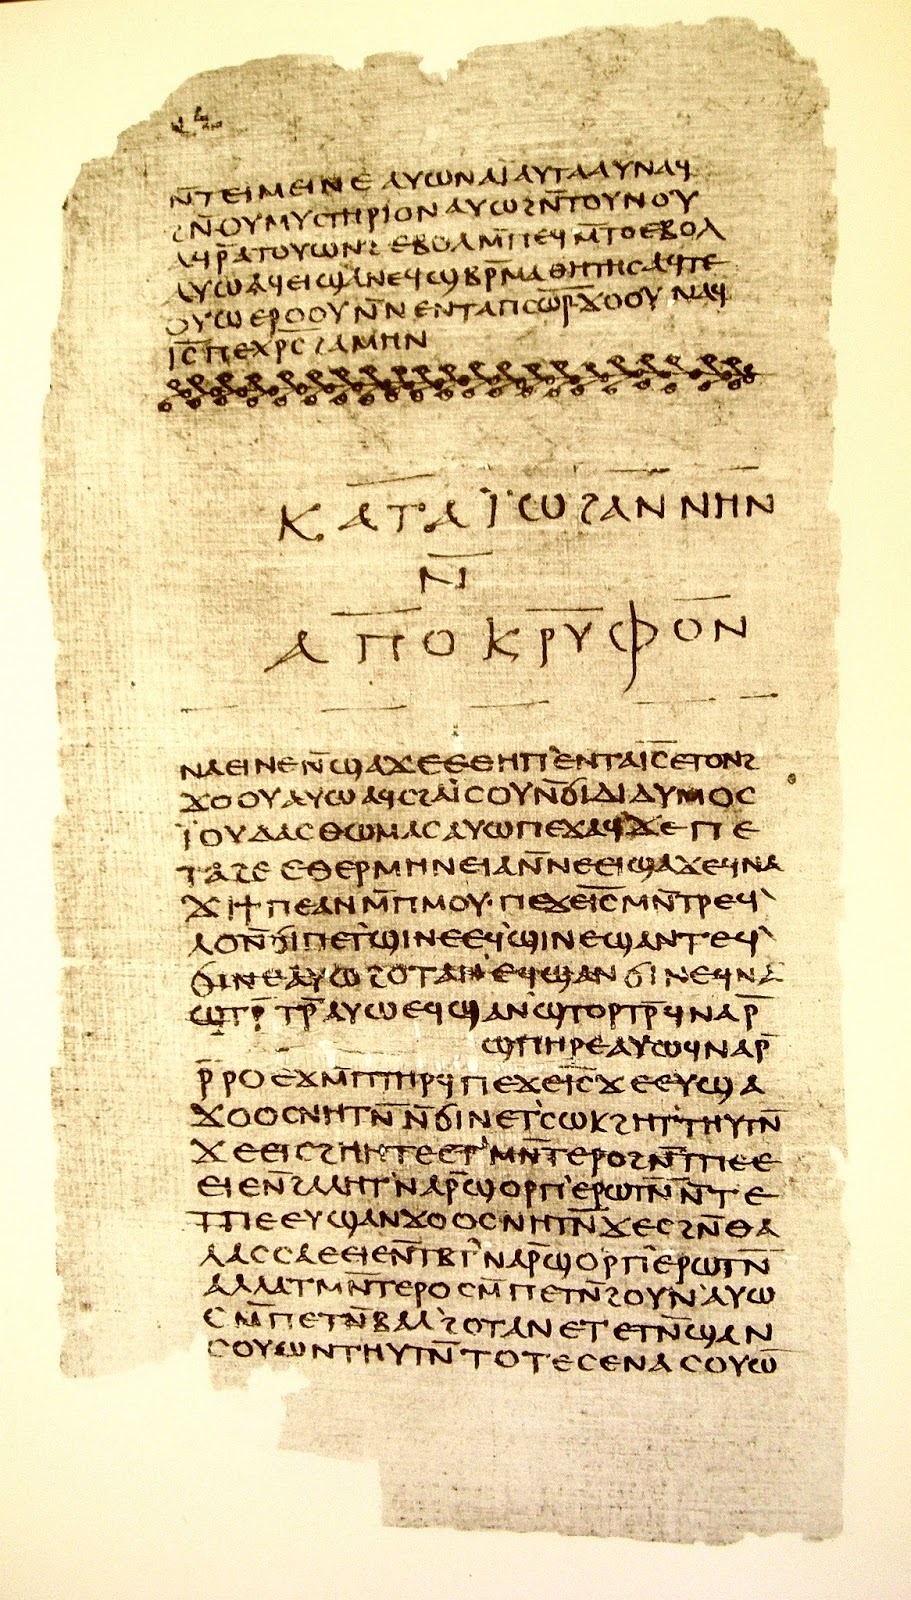 ⲛ̄ⲧⲉⲓⲙⲉⲓⲛⲉ ⲁⲩⲱ ⲛⲁⲓ̈ ⲁⲩⲧⲁⲁⲩ ⲛⲁϥ
ϩⲛ̄ ⲟⲩⲙⲩⲥⲧⲏⲣⲓⲟⲛ ⲁⲩⲱ ϩⲛ̄ ⲧⲟⲩⲛⲟⲩ
ⲁϥⲣ̄ ⲁⲧⲟⲩⲱⲛϩ ⲉⲃⲟⲗ ⲙ̄ⲡⲉϥⲙ̄ⲧⲟ ⲉⲃⲟⲗ
ⲁⲩⲱ ⲁϥⲉⲓ ϣⲁ ⲛⲉϥϣⲃⲣ̄ⲙⲁⲑⲏⲧⲏⲥ ⲁϥⲧⲉ
ⲟⲩⲱ ⲉⲣⲟⲟⲩ ⲛ̄ⲛⲉⲛⲧⲁ ⲡⲥⲱ̅ⲣ̅ ϫⲟⲟⲩ ⲛⲁϥ
ⲓ̅ⲥ̅ ⲡⲉⲭ̅ⲣ̅ⲥ̅ ϩⲁⲙⲏⲛ
ⲕⲁⲧⲁ ⲓ̈ⲱϩⲁⲛⲛⲏⲛ
ⲛ̄
ⲁⲡⲟⲕⲣⲩⲫⲟⲛ
ⲛⲁⲉⲓ ⲛⲉ ⲛ̄ϣⲁϫⲉ ⲉⲑⲏⲡ ⲉⲛⲧⲁ ⲓ̅ⲥ̅ ⲉⲧⲟⲛϩ
ϫⲟⲟⲩ ⲁⲩⲱ ⲁϥⲥϩⲁⲓ̈ⲥⲟⲩ ⲛ̄ϭⲓ ⲇⲓⲇⲩⲙⲟⲥ
ⲓ̈ⲟⲩⲇⲁⲥ ⲑⲱⲙⲁⲥ ⲁⲩⲱ ⲡⲉϫⲁϥ ϫⲉ ⲡⲉ
ⲧⲁϩⲉ ⲉⲑⲉⲣⲙⲏⲛⲉⲓⲁ ⲛ̄ⲛⲉⲉⲓϣⲁϫⲉ ϥⲛⲁ
ϫⲓ ϯⲡⲉ ⲁⲛ ⲙ̄ⲡⲙⲟⲩ ⲡⲉϫⲉ ⲓ̅ⲥ̅ ⲙⲛ̄ⲧⲣⲉϥ
ⲗⲟ ⲛ̄ϭⲓ ⲡⲉⲧϣⲓⲛⲉ ⲉϥϣⲓⲛⲉ ϣⲁⲛⲧⲉϥ
ϭⲓⲛⲉ ⲁⲩⲱ ϩⲟⲧⲁⲛ ⲉϥϣⲁⲛϭⲓⲛⲉ ϥⲛⲁ
ϣⲧⲣ̄ⲧⲣ̄ ⲁⲩⲱ ⲉϥϣⲁⲛϣⲧⲟⲣⲧⲣ̄ ϥⲛⲁⲣ̄
ϣⲡⲏⲣⲉ ⲁⲩⲱ ϥⲛⲁⲣ̄
ⲣ̄ⲣⲟ ⲉϫⲙ̄ ⲡⲧⲏⲣϥ ⲡⲉϫⲉ ⲓ̅ⲥ̅ ϫⲉ ⲉⲩϣⲁ
ϫⲟⲟⲥ ⲛⲏⲧⲛ̄ ⲛ̄ϭⲓ ⲛⲉⲧⲥⲱⲕ ϩⲏⲧ ⲧⲏⲩⲧⲛ̄
ϫⲉ ⲉⲓⲥ ϩⲏⲏⲧⲉ ⲉⲧⲙⲛ̄ⲧⲉⲣⲟ ϩⲛ̄ ⲧⲡⲉ ⲉ
ⲉⲓⲉ ⲛ̄ϩⲁⲗⲏⲧ ⲛⲁⲣ̄ ϣⲟⲣⲡ ⲉⲣⲱⲧⲛ̄ ⲛ̄ⲧⲉ
ⲧⲡⲉ ⲉⲩϣⲁⲛϫⲟⲟⲥ ⲛⲏⲧⲛ̄ ϫⲉ ⲥϩⲛ̄ ⲑⲁ
ⲗⲁⲥⲥⲁ ⲉⲉⲓⲉ ⲛ̄ⲧⲃⲧ ⲛⲁⲣ̄ ϣⲟⲣⲡ ⲉⲣⲱⲧⲛ̄
ⲁⲗⲗⲁ ⲧⲙⲛ̄ⲧⲉⲣⲟ ⲥⲙ̄ⲡⲉⲧⲛ̄ϩⲟⲩⲛ ⲁⲩⲱ
ⲥⲙ̄ⲡⲉⲧⲛ̄ⲃⲁⲗ ϩⲟⲧⲁⲛ ⲉⲧⲉⲧⲛ̄ϣⲁⲛ
ⲥⲟⲩⲱⲛ ⲧⲏⲩⲧⲛ̄ ⲧⲟⲧⲉ ⲥⲉⲛⲁⲥⲟⲩⲱ